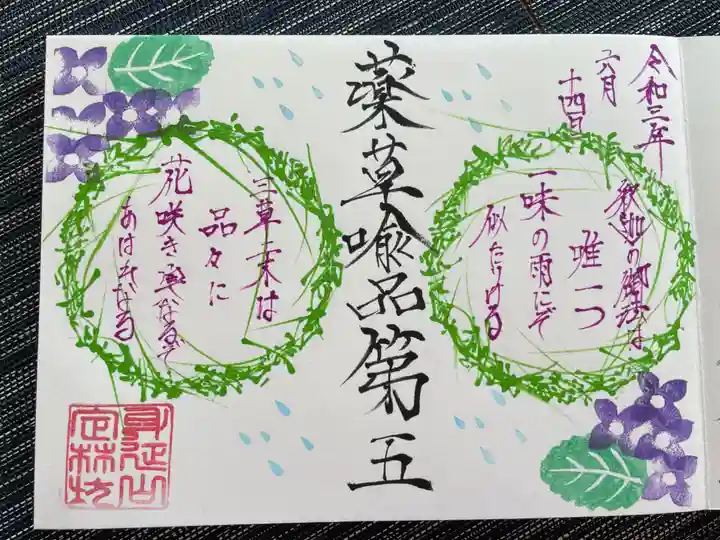 令和三年
六月
十四日
釈迦の御法は
唯一つ
一味の雨にぞ
似たりける
薬草喩品第五
三草二木は
品々に
花咲き実なるぞ
あはれなる
身延山
定林坊